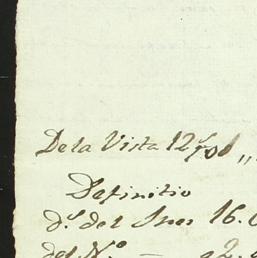 De la Vista 12
Definitio
d.º del Snor 16.
del N.º — 2.